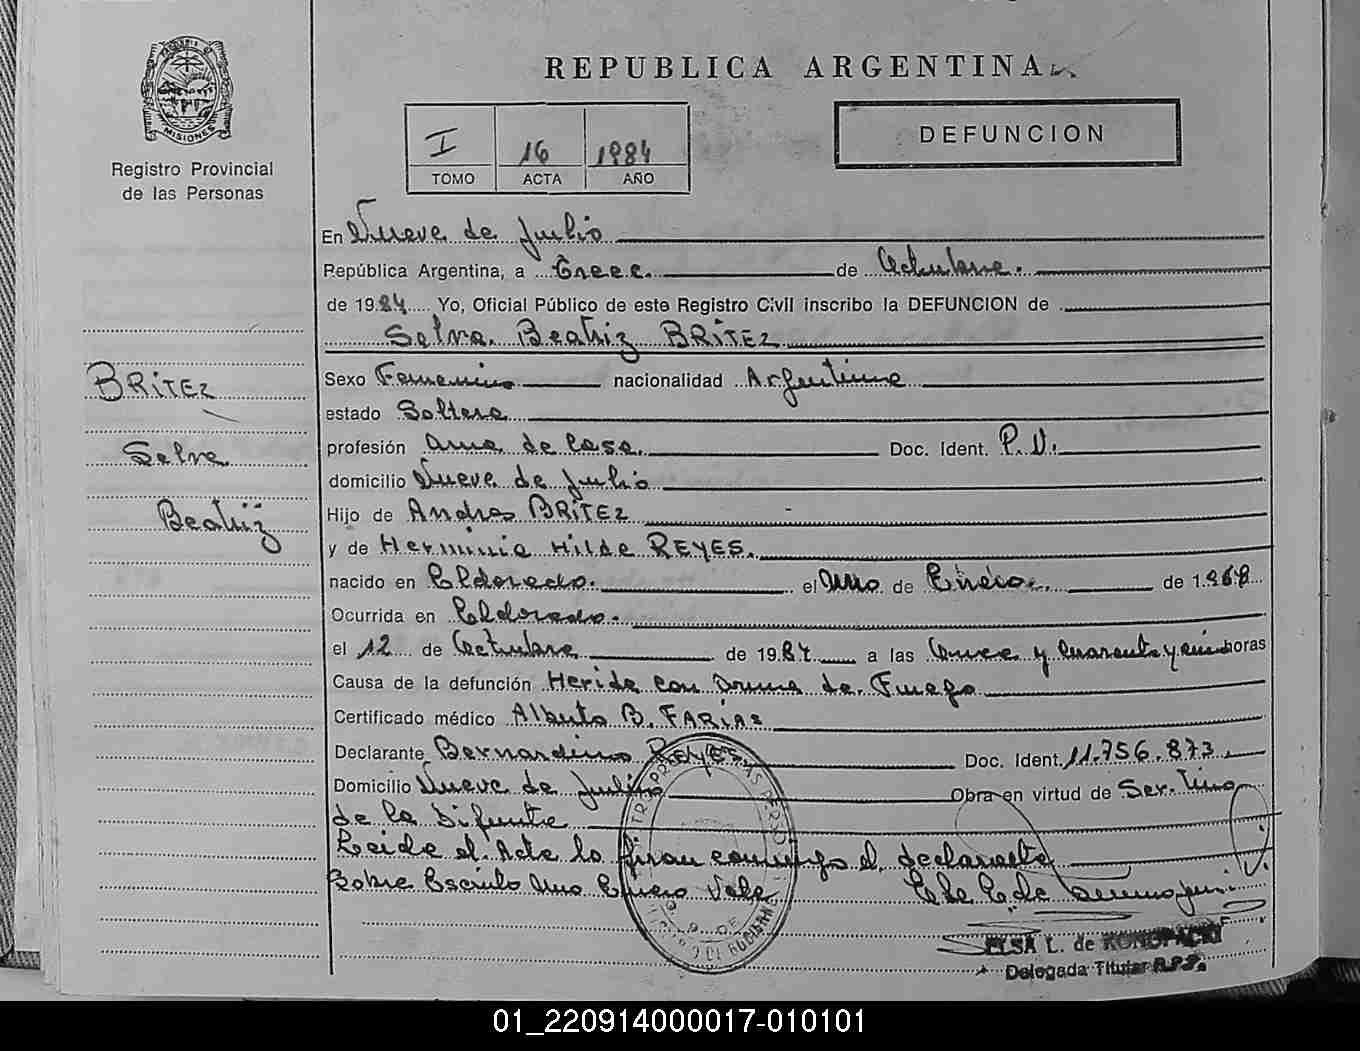 REPUBLICA ARGENTINA
MISIONES
Registro Provincial
de las Personas
I 16 1984
TOMO ACTA AÑO
DEFUNCION
En Nueve de Julio
República Argentina, a Trece. de Octubre.
de 1984 Yo, Oficial Público de este Registro Civil inscribo la DEFUNCION de
Selva Beatriz BRITEZ
BRITEZ
Selva
Beatriz
Sexo Femenino nacionalidad Argentina
estado Soltera
profesión ama de casa. Doc. Ident.
domicilio Nueve de Julio
Hijo de Andres BRITEZ
y de Herminia Hilda REYES.
nacido en Eldorado. el Uno de Enero de 1.968
Ocurrida en Eldorado.
el 12 de Octubre de 1984 a las Once y Cuarenta y horas
Causa de la defunción Herida con Arma de Fuego
Certificado médico Alberto B. FARIAS
Declarante Bernardino REYES. Doc. Ident. 11.756.873.
Domicilio Nueve de Julio Obra en virtud de Ser tino
de la Difunta
Leida el Acta la firman conmigo el declarante
Sobre Escrito Uno Enero Vale
ELSA L. de KONOPACKI
Delegada Titular R.P.P.
01_220914000017-010101